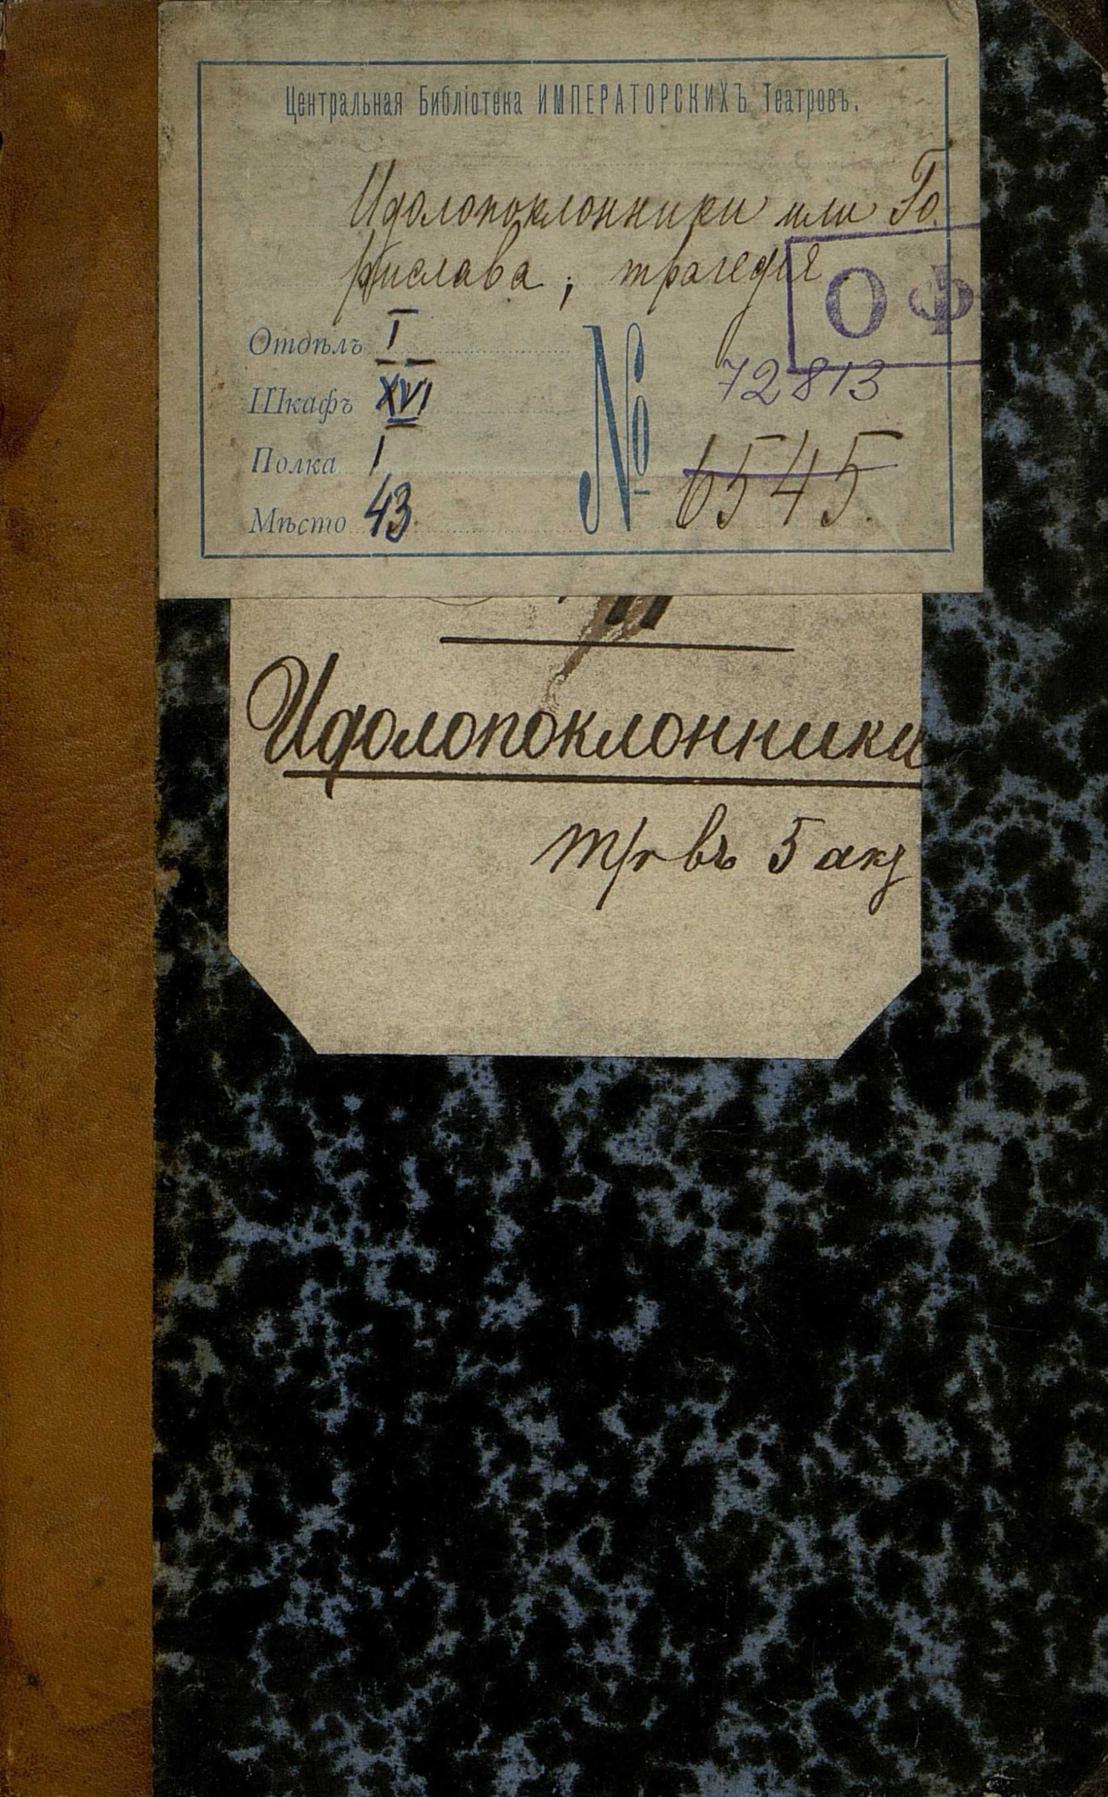 Центральная Библіотека ИМПЕРАТОРСКИХЪ Театровъ.
Идолопоклонники или Го.
рислава; трагедія
ОФ
Отдѣлъ I
Шкафъ XVI
Полка I
Мѣсто 43
№ 72813
6545.
Идолопоклонники
тр въ 5 акд